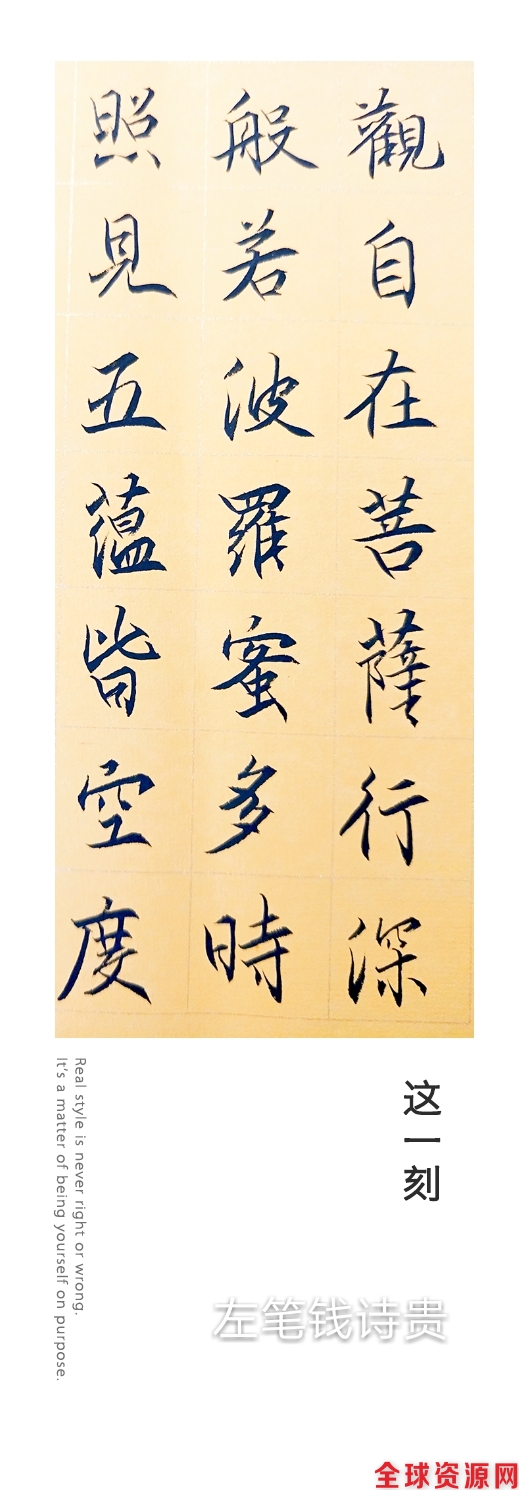 觀自在菩薩行深
般若波羅蜜多時
照見五蘊皆空度
这一刻
Real style is never right or wrong.
It's a matter of being yourself on purpose.
左笔钱诗贵
全球资源网